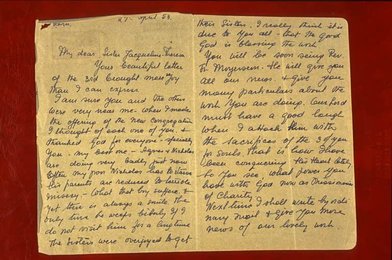 27-April 53.
My dear Sister Jacqueline Therese
Your beautiful letter
of the 3rd brought more joy
than I can express.
I am sure you and the others
were very near me when I made
the offering of the New Congregation
I thought of each one of you &
thanked God for everyone - specially
you - my next me - Agnes & Nicholas
are doing very badly just now
Often my poor Nicholas has to starve
his parents are reduced to terrible
misery - What but my surprise &
yet there is always a smile - the
only time he weeps bitterly if I
do not visit him for a long time
The Sisters were overjoyed to get
their Sister. I really think it is
due to you all - that the good
God is blessing the work
You will be soon seeing Rev.
Fr. He will give you
all our news & give you
many particulars about the
work you are doing. Our Lord
must have a good laugh
when I attack Him with
the sacrifices of the 3 of you
for souls. That is how I have
been conquering His Heart lately
So you see, what power you
have with God now as Missionaries
of Charity.
Next time I shall write by ordi
nary mail & give you more
news of our lively work